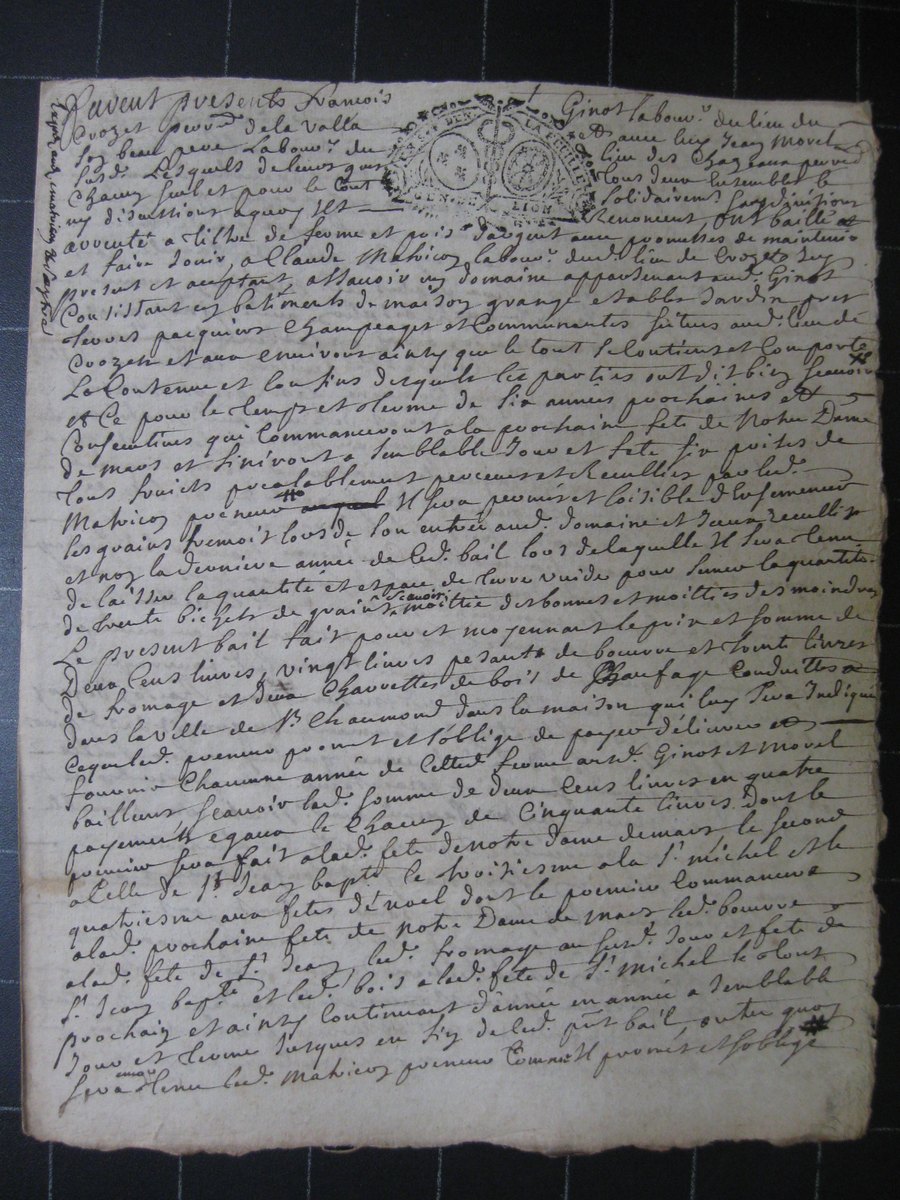 Furent presents francois Ginot labour.r du lieu du
Crozet parr.e de la valla et avec luy Jean Morel
son beau pere Labour.r du lieu des Chazeaux parr.e
susd. Lesquels de leurs gré tous deux Ensembles et
Chacun seul et pour le tout Solidairem.t sans division
ny discussions a quoy ils Renoncent ont baillé et
a titre de ferme et prix d'argent aux promesses de maintenir
et faire Jouir, a Claude Matricon labour.r dud. lieu de Crozet Icy
present et acceptant assavoir un domaine appartenant aud. Ginot
Consistant en batiments de maison grange etables Jardin prez
terres pacquiers Champeages et Communautes situes aud. lieu de
Crozet et aux environs ainsy que le tout se Contient et Comporte
La Contenue et Confins desquels les parties ont dit bien scavoir
et Ce pour le temps et terme de six années prochaines et
Consecutives qui Commanceront a la prochaine fete de Notre Dame
de mars et finiront a semblable Jour et fete six prises de
tous fruicts prealablement perceues et Recuillies par led.
Matricon preneur Il sera permis et loisible d'
les grains lors de son entrée aud. domaine et
et non la derniere année de led. bail lors de laquelle Il sera tenu
de laisser la quantité et espace de terre vuide pour semer la quantité
de trente bichets de grains scavoir moittié des bonnes et moittiés des moindres
Le present bail fait pour et moyennant le prix et somme de
Deux Cens livres, vingt livres pesants de beurre et trente livres
de fromage et deux Charrettes de bois de Chaufage Conduittes
dans la ville de St Chaumond dans la maison qui luy sera Indiquée
Ce que led. preneur promet et s'oblige de payer délivrer et
fournir Chacunne année de Cette ferme auxd. Ginot et Morel
bailleurs scavoir lad. somme de deux Cens livres en quatre
payements egaux le Chacun de Cinquante livres. Dont le
premier sera fait a lad. fete de notre dame de mars le second
a Celle de St Jean bapt.e le troisiesme a la St michel et le
quatriesme aux fetes de noel dont le premier Commancera
a lad. prochaine fete de Notre Dame de mars led. beurre
a lad. fete de St Jean, led. fromage au susd. Jour et fete de
St Jean bapt.e et led. bois a lad. fete de St Michel le tout
prochain et ainsy Continuant d'année en année a semblable
Jour et terme Jusques en fin de led. pnt bail, outre quoy
sera encor tenu led. Matricon preneur Comme Il promet et s'oblige